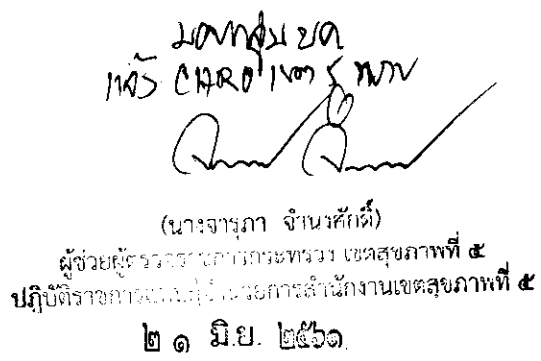 มอบกลุ่ม ยค
แจ้ง CHRO เขต 5 ทราบ
(นางจารุภา จำนงศักดิ์)
ผู้ช่วยผู้ตรวจราชการกระทรวง เขตสุขภาพที่ ๕
ปฏิบัติราชการแทนผู้อำนวยการสำนักงานเขตสุขภาพที่ ๕
๒ ๑ มิ.ย. ๒๕๖๑